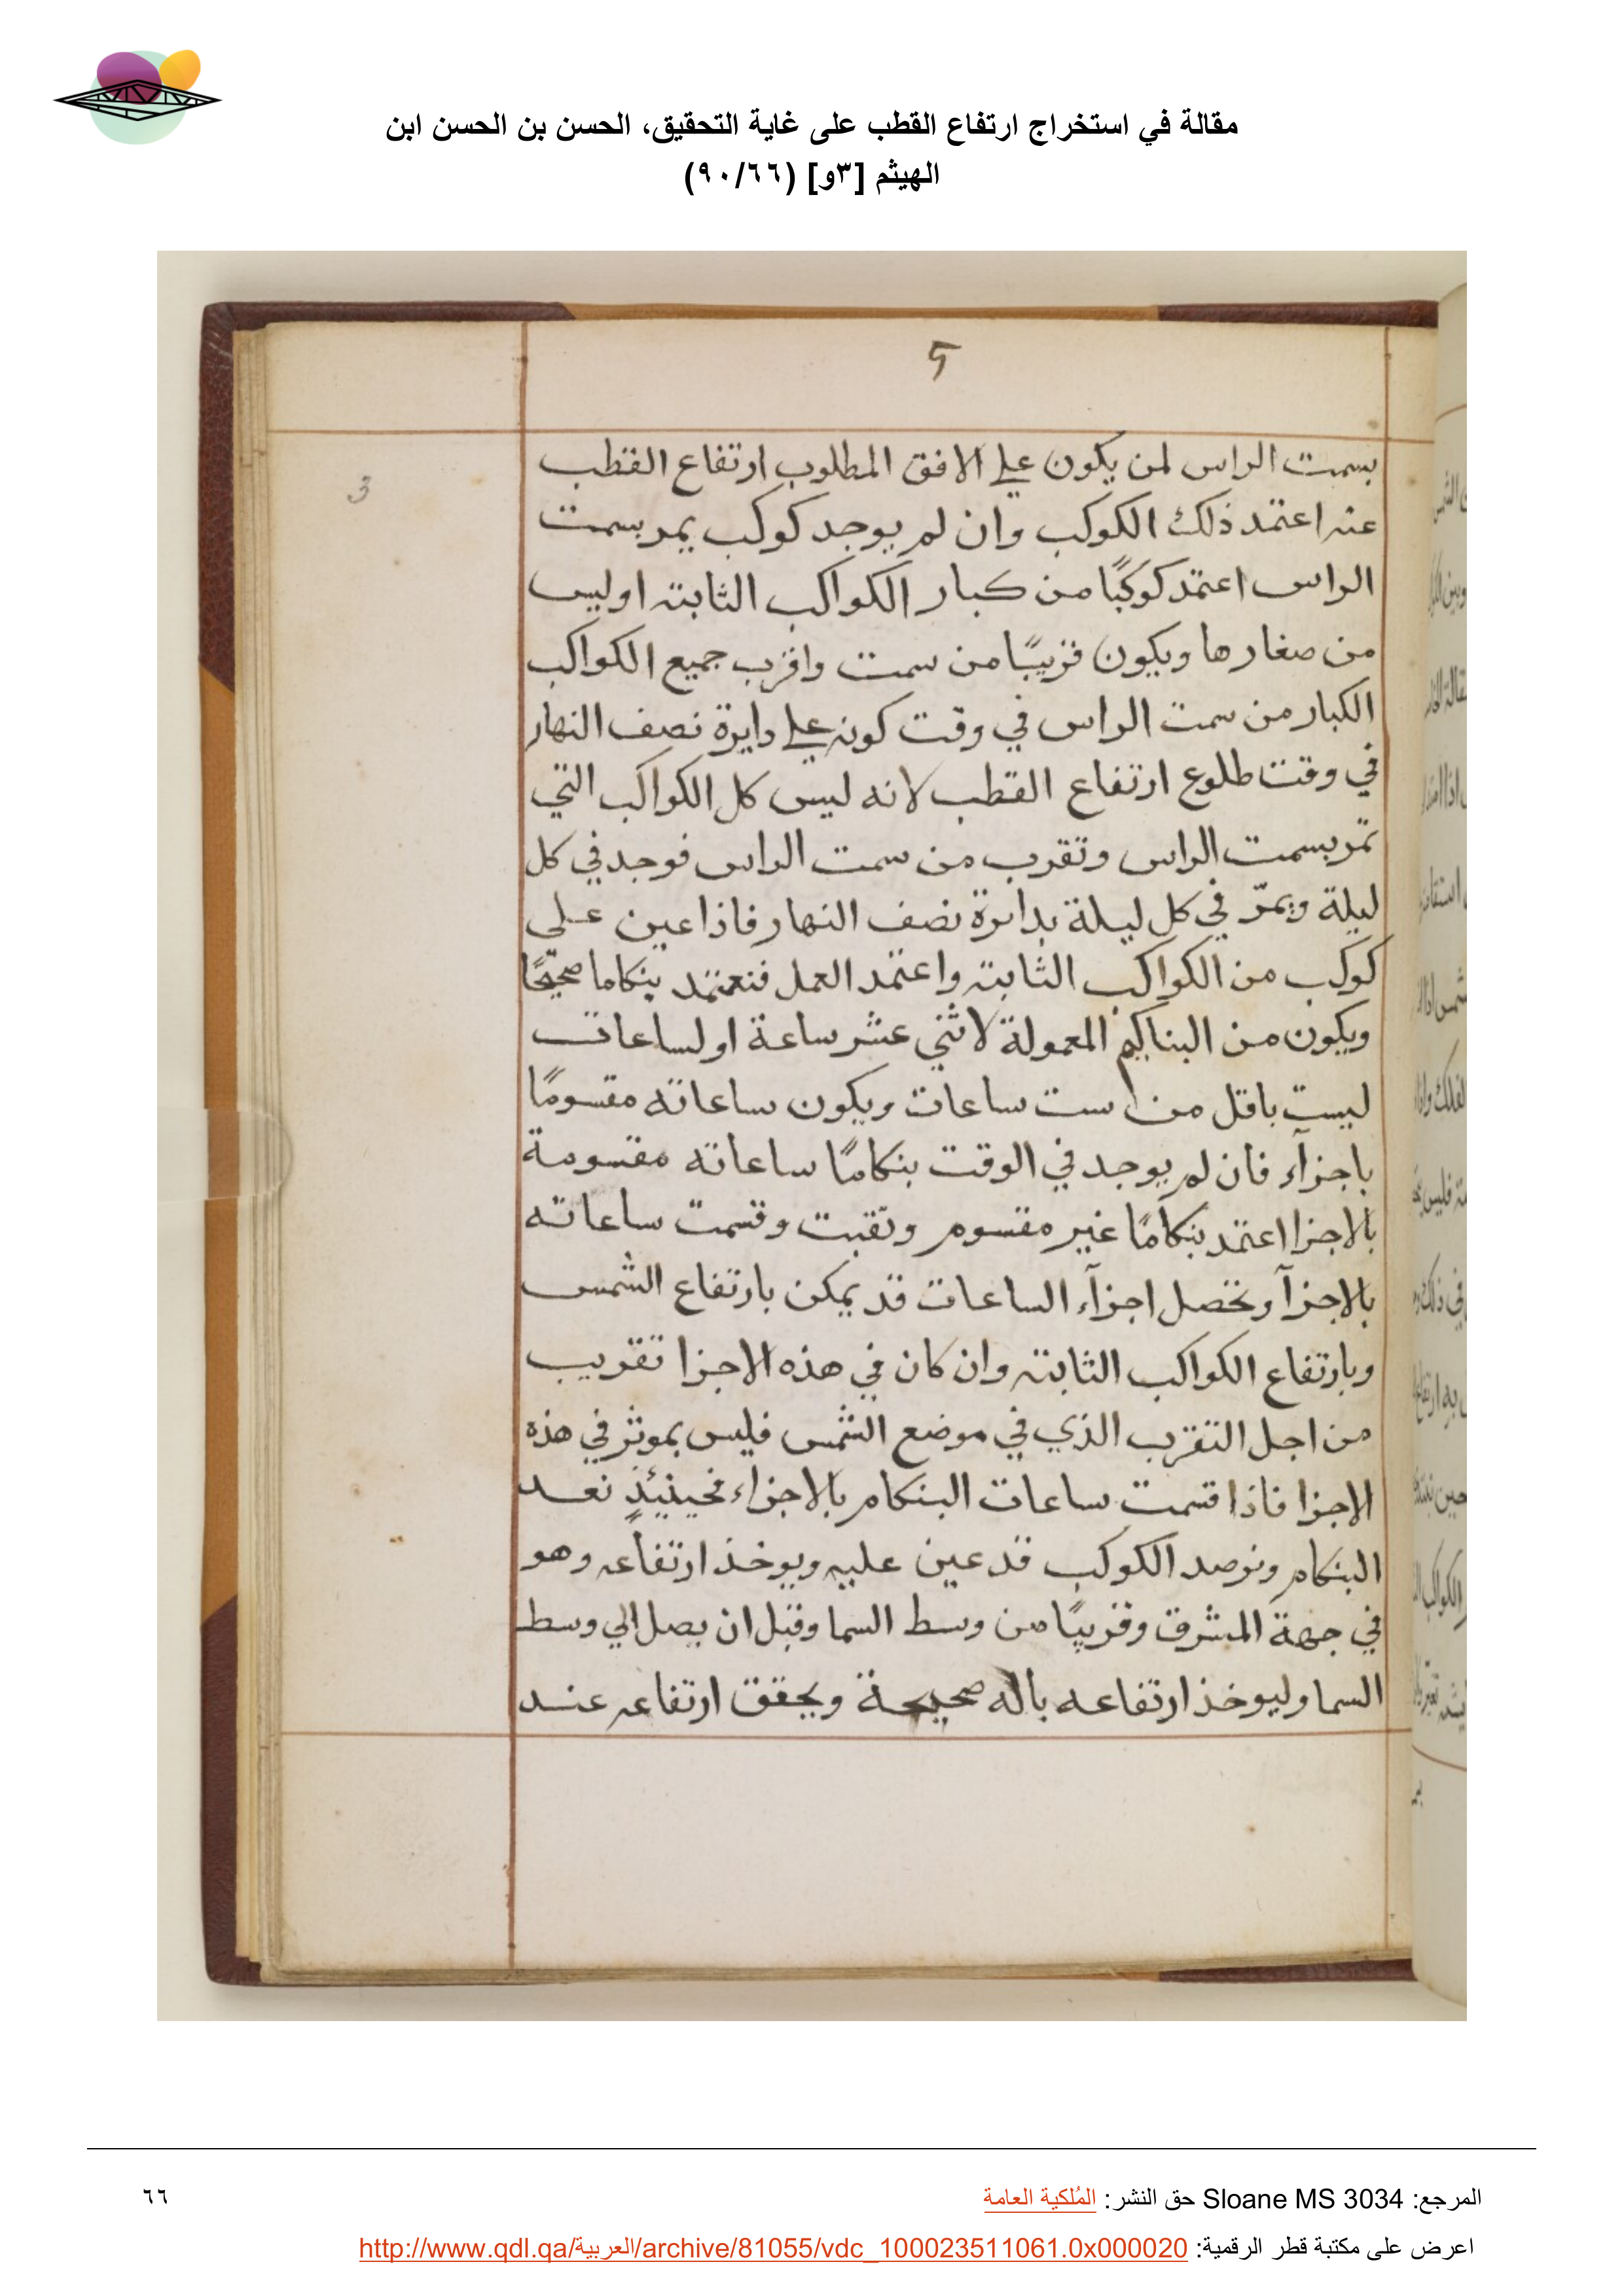 مقالة في استخراج ارتفاع القطب على غاية التحقيق، الحسن بن الحسن ابن
الهيثم [٣و] (٩٠/٦٦)
5
3
بسمت الراس لمن يكون على الافق المطلوب ارتفاع القطب
عنه اعتمد ذلك الكوكب وان لم يوجد كوكب يمر بسمت
الراس اعتمد كوكبًا من كبار الكواكب الثابته اوليس
من صغارها ويكون قريبًا من سمت واقرب جميع الكواكب
الكبار من سمت الراس في وقت كونه على دايرة نصف النهار
في وقت طلوع ارتفاع القطب لانه ليس كل الكواكب التي
تمر بسمت الراس وتقرب من سمت الراس فوجد في كل
ليلة ويمرّ في كل ليلة بدائرة نصف النهار فاذا عين على
كوكب من الكواكب الثابته واعتمد العمل فنعتمد بنكاما صحيحًا
ويكون من البناكيم المعمولة لاثني عشر ساعة او لساعات
ليست باقل من ست ساعات ويكون ساعاته مقسومًا
باجزآء فان لم يوجد في الوقت بنكامًا ساعاته مقسومة
بالاجزا اعتمد بنكامًا غير مقسوم ونقبت وقسمت ساعاته
بالاجزآ وتحصل اجزآء الساعات قد يمكن بارتفاع الشمس
وبارتفاع الكواكب الثابته وان كان في هذه الاجزا تقريب
من اجل التقرب الذي في موضع الشمس فليس بموثر في هذه
الاجزا فاذا قسمت ساعات البنكام بالاجزاء فحينئذٍ نعد
البنكام ونرصد الكوكب قد عين عليه ويوخذ ارتفاعه وهو
في جهة المشرق وقريبًا من وسط السما وقبل ان يصل الي وسط
السما وليوخذ ارتفاعه باله صحيحة ويحقق ارتفاعه عند
المرجع: Sloane MS 3034 حق النشر: المُلكية العامة
٦٦
اعرض على مكتبة قطر الرقمية: http://www.qdl.qa/العربية/archive/81055/vdc_100023511061.0x000020